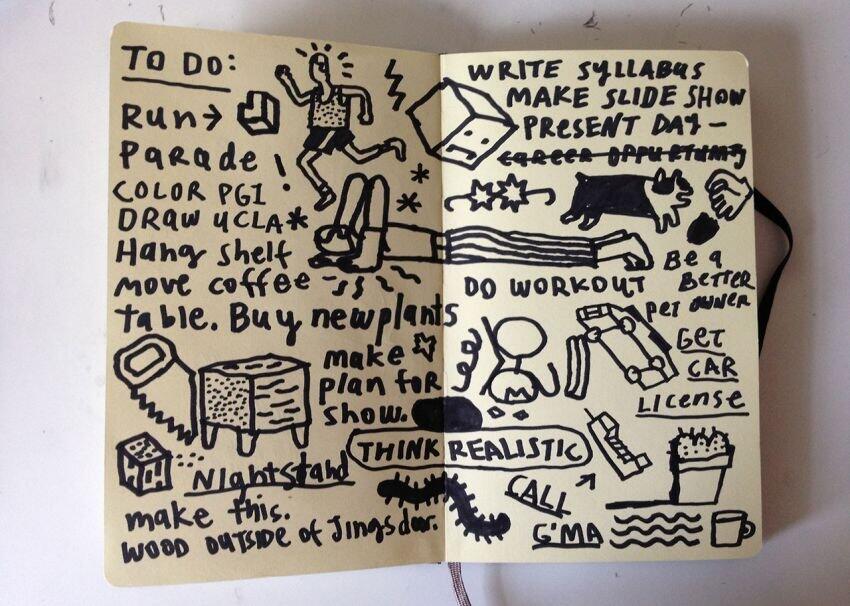 TO DO:
Run→
Parade!
COLOR PG1
DRAW UCLA*
Hang shelf
move coffee
table. Buy new plants
make
plan for
show.
THINK REALISTIC
Nightstand
make this.
WOOD OUTSIDE of Jings door.
WRITE SYLLABUS
MAKE SLIDE SHOW
PRESENT DAY-
CAREER OPPURTUNITY
Be a
BETTER
PET OWNER
DO WORKOUT
GET
CAR
License
CALL
G'MA